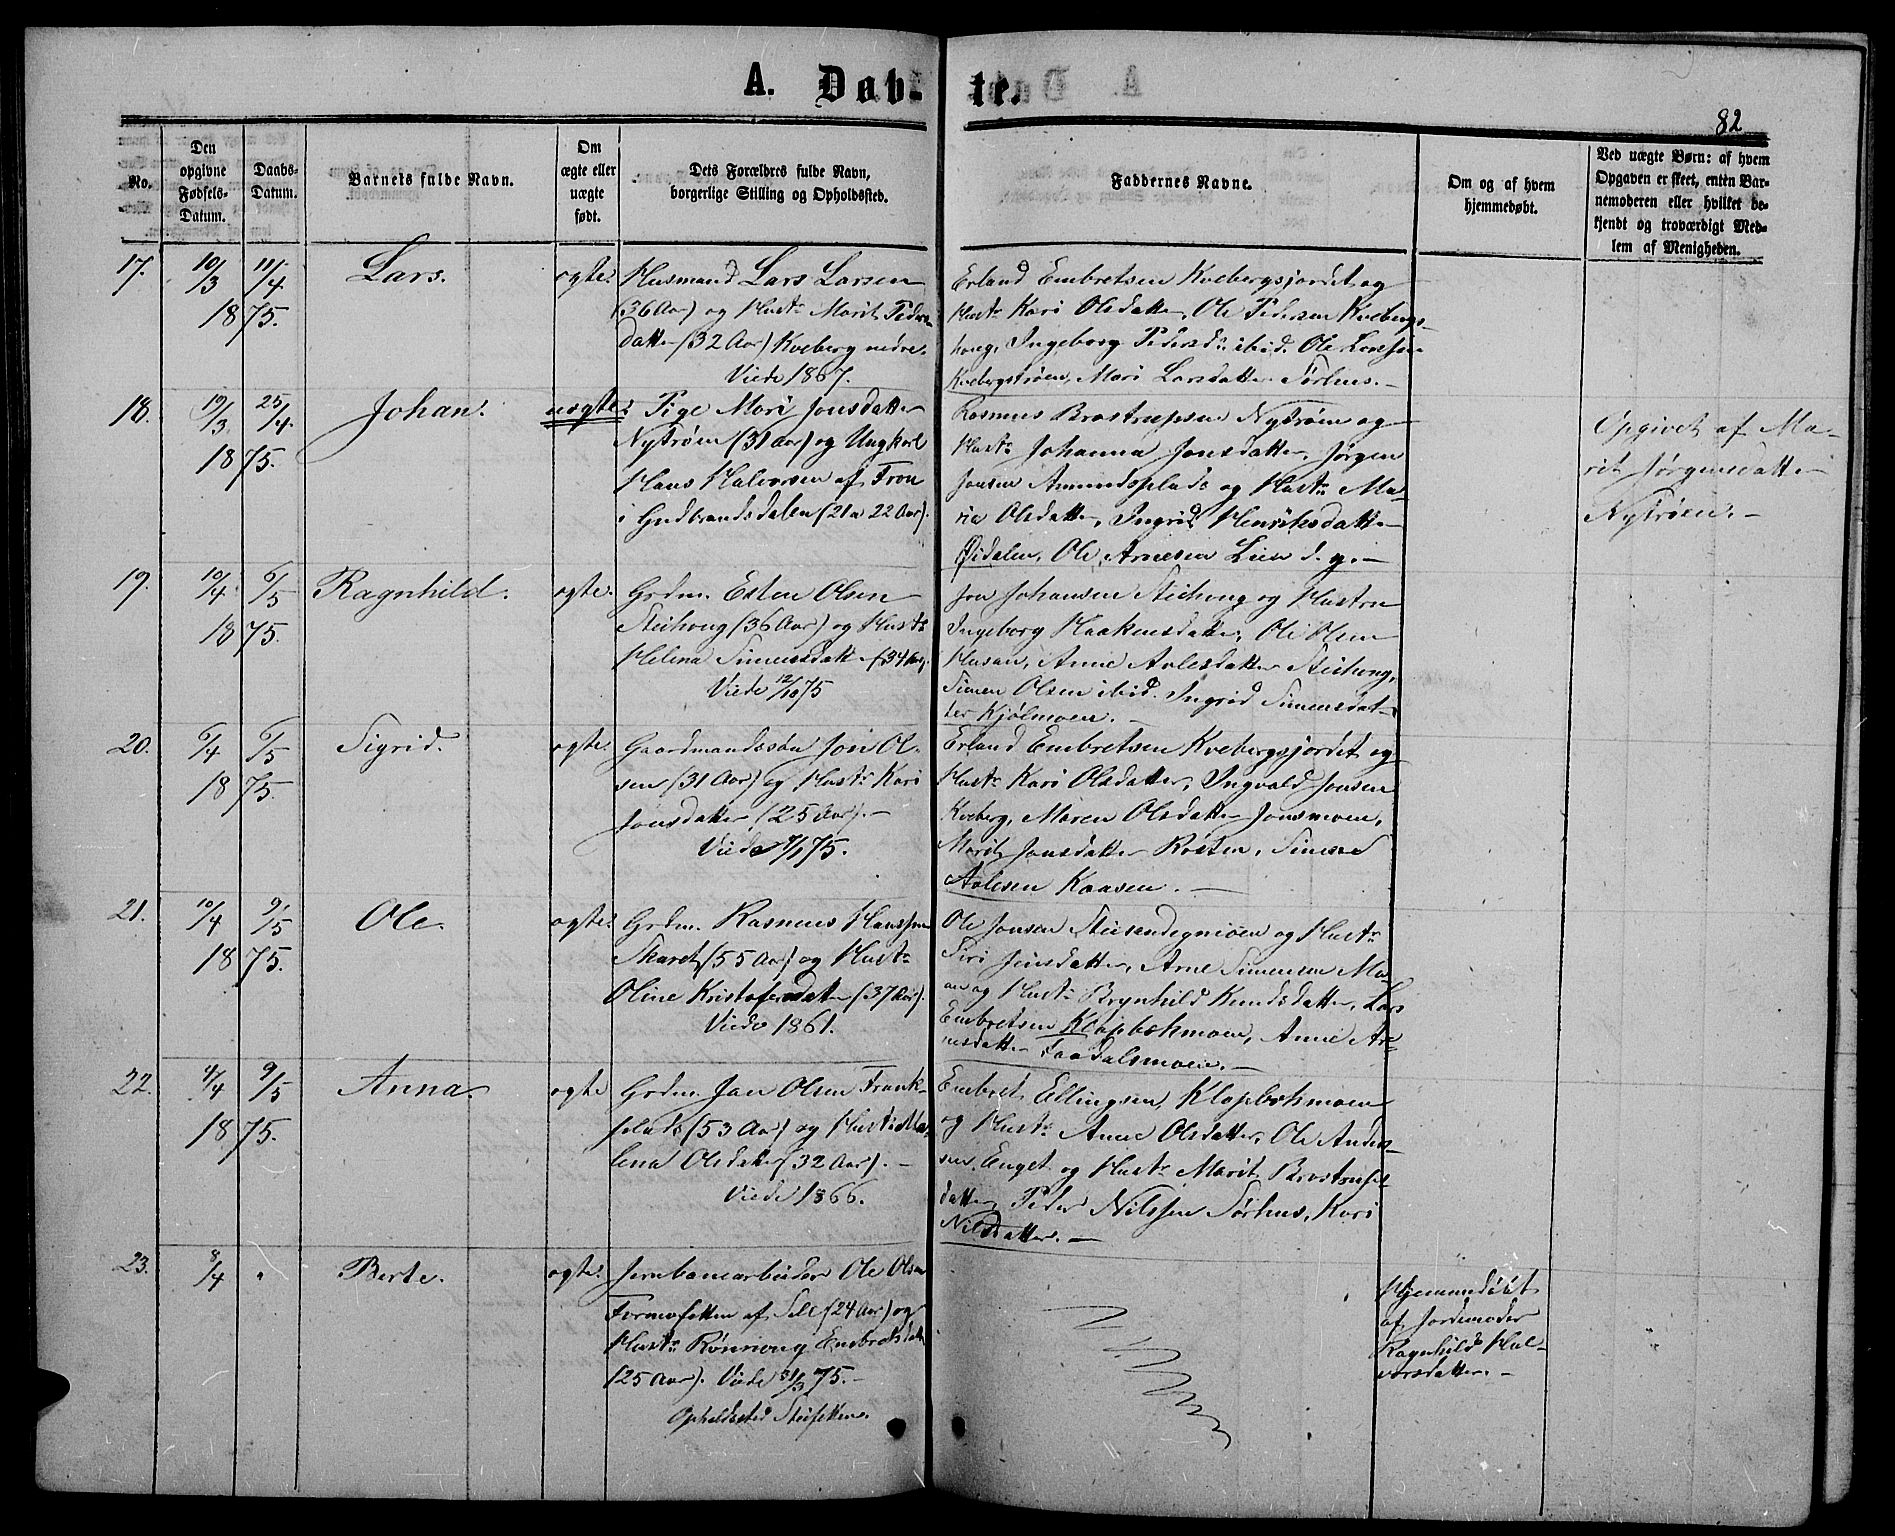 A. Døb-
te.
82
No.
Den
opgivne
Fødsels-
Datum.
Daabs-
Datum.
Barnets fulde Navn.
Om
ægte eller
uægte
født.
Dets Forældres fulde Navn,
borgerlige Stilling og Opholdssted.
Faddernes Navne.
Om og af hvem
hjemmedøbt.
Ved uægte Børn: af hvem
Opgaven er skeet, enten Bar-
nemoderen eller hvilket be-
kjendt og troværdigt Med-
lem af Menigheden.
17.
10/3 11/4
1875.
Lars.
ægte.
Husmand Lars Larsen
(36 Aar) og Hustr. Marit Peders-
datter (32 Aar) Kveberg nedre.
Viede 1867.
Erland Embretsen Kvebergsjordet og
Hustr. Kari Olsdatter, Ole Pedersen Kvebergs-
haug, Ingeborg Pedersd. ibid. Ole Larsen
Kvebergstrøen, Mari Larsdatter Sørhus. -
18.
19/3 25/4.
1875.
Johan.
uægte.
Pige Mari Jonsdatter
Nytrøen (31 Aar) og Ungkarl
Hans Halvorsen af Fron
i Gudbrandsdalen (21 a 22 Aar).
Rasmus Brostrupsen Nytrøen og
Hustr. Johanna Jonsdatter, Jørgen
Jonsen Amundsplads og Hustr. Ma-
ria Olsdatter, Ingrid Henriksdatter
Øidalen, Ole Arnesen Lien d. y. -
Opgivet af Ma-
rit Jørgensdatter
Nytrøen. -
19.
10/4 6/5
1875.
Ragnhild.
ægte.
Grdm. Esten Olsen
Steihaug (36 Aar) og Hustr.
Helena Simensdatter (34 Aar).
Viede 12/10 75
Jon Johansen Steihaug og Hustru
Ingeborg Haakensdatter, Ole Olsen
Husan, Anne Avlesdatter Steihaug,
Simen Olsen ibid. Ingrid Simensdat-
ter Kjølmoen. -
20.
6/4 6/5
1875.
Sigrid.
ægte.
Gaardmandssøn Jon Ol-
sen (31 Aar) og Hustr. Kari
Jonsdatter (25 Aar). -
Viede 75.
Erland Embretsen Kvebergsjordet og
Hustr. Kari Olsdatter, Ingvald Jonsen
Kveberg, Maren Olsdatter Jonsmoen,
Marit Jonsdatter Røsten, Simen
Avlesen Kaasen. -
21.
10/4 9/5
1875.
Ole.
ægte.
Grdm. Rasmus Hanssen
Skaret (55 Aar) og Hustr.
Oline Kristofersdatter (37 Aar).
Viede 1861.
Ole Jonsen Steisandegnmoen og Hustr.
Siri Jensdatter, Arne Simensen Mo-
en og Hustr. Brynhild Knudsdatter, Lars
Embretsen Klapbækmoen, Anne Ar-
nesdatter Faadalsmoen. -
22.
4/4 9/5
1875.
Anna.
ægte
Grdm. Jon Olsen Trønk-
plads (53 Aar) og Hustr. Ma-
lena Olsdatter (32 Aar). -
Viede 1866.
Embret Ellingsen Klapbækmoen
og Hustr. Anne Olsdatter, Ole Anders-
sen Enget og Hustr. Marit Brostrups-
datter, Peder Nilssen Sørhus, Kari
Nilsdatter. -
23.
8/4
Berte.
ægte.
Jernbanearbeider Ole Olsen
Formofetten af Sell (24 Aar) og
Hustr. Rønnaug Embretsdatter
(25 Aar). Viede 31/3 75. -
Opholdssted Steifetten.
Hjemmedøbt
af Jordemoder
Ragnhild Hal-
vorsdatter. -